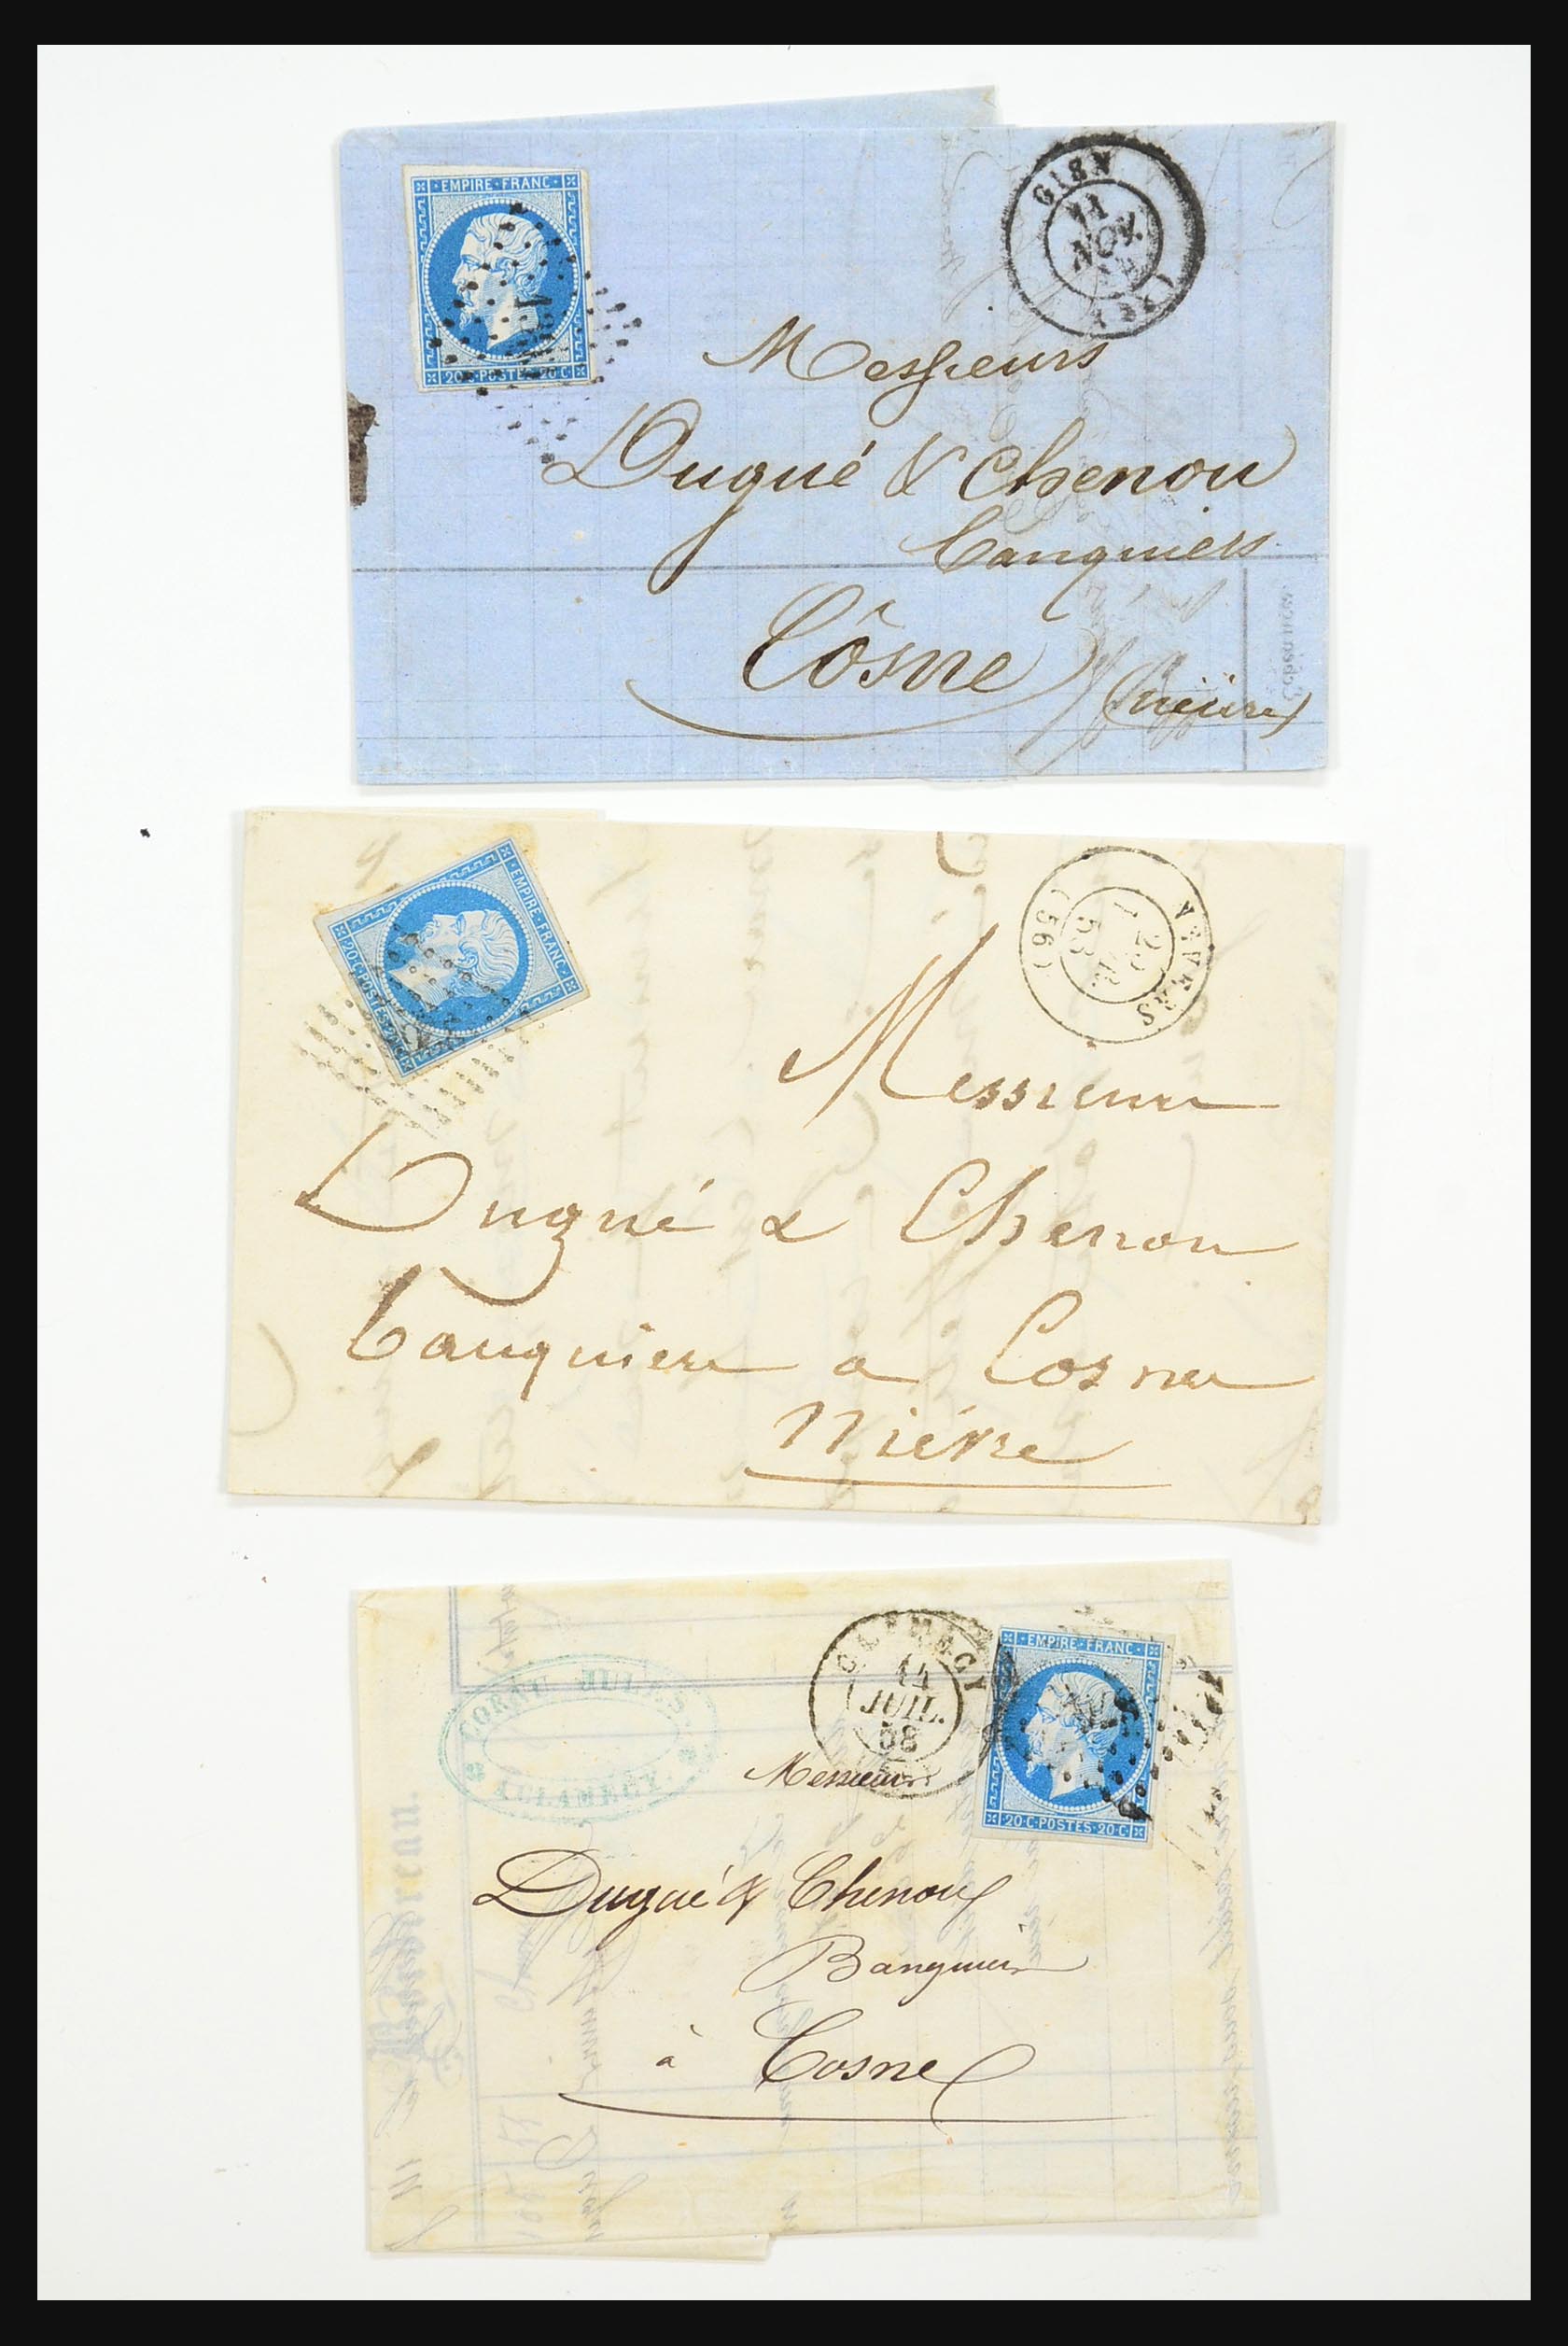 EMPIRE·FRANC·
20·C·POSTES·20·C
GIEN
11
NOV.
Messieurs
Dugué & Chenou
banquiers
Côsne
(nièvre)
EMPIRE·FRANC·
20·C·POSTES·20·C
(56)
58
Messieurs
Dugué & Chenou
banquiers a Cosne
Nièvre
CORNU JULES
A CLAMECY.
CLAMECY
14
JUIL.
58
EMPIRE·FRANC·
20·C·POSTES·20·C
Messieurs
Dugué & Chenou
Banquiers
à Cosne